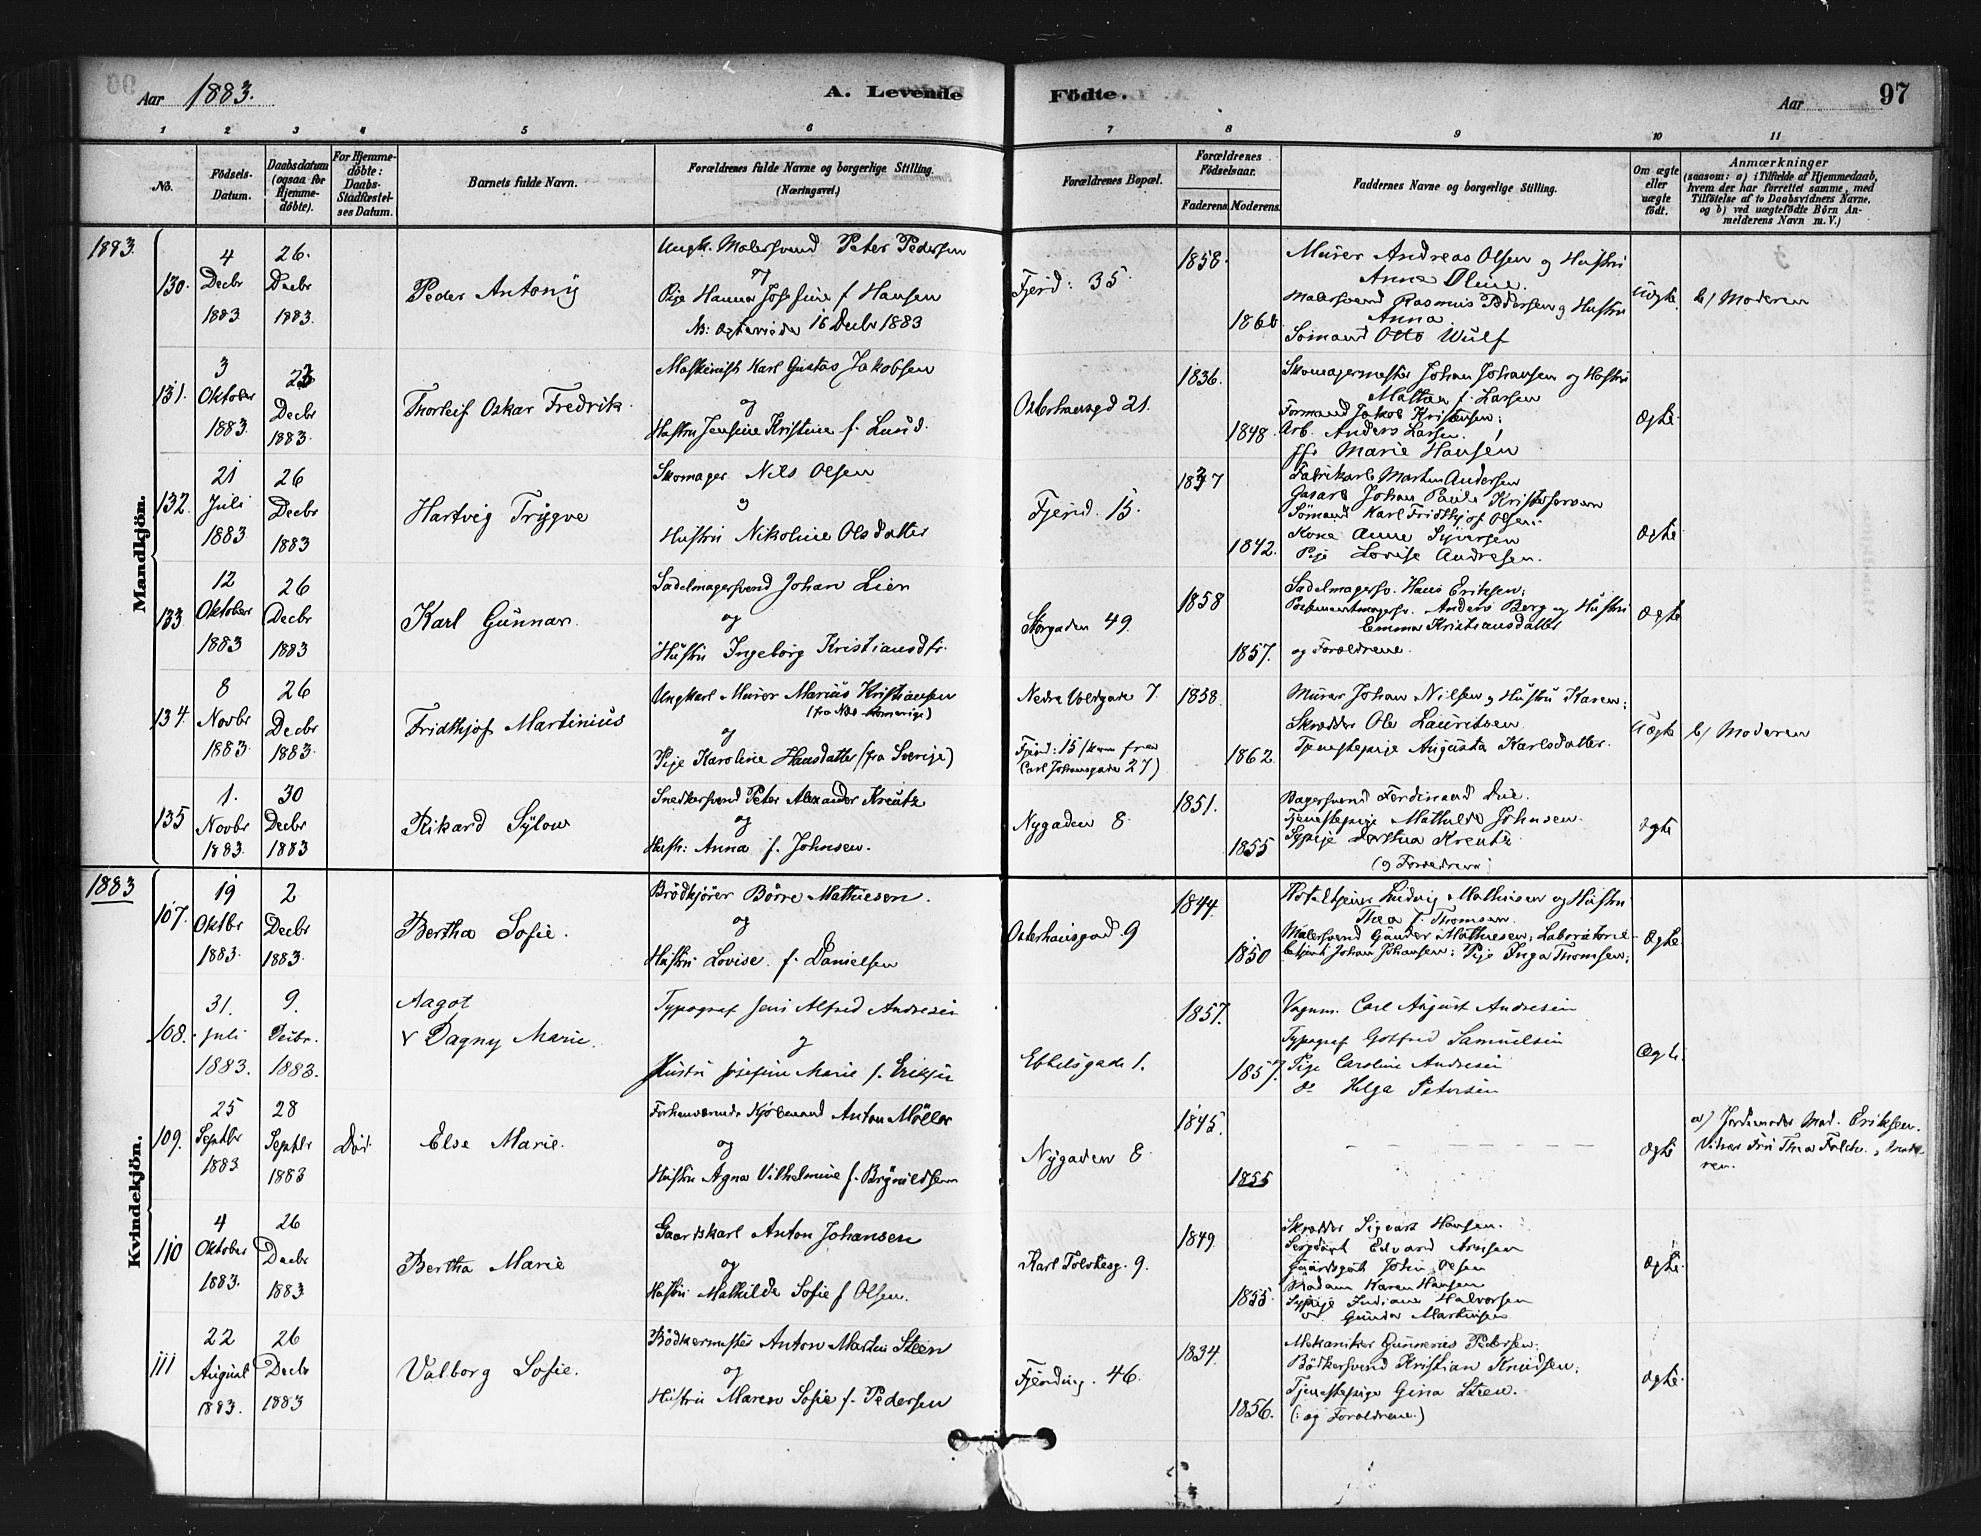 Aar 1883.
A. Levende Födte.
Aar
97
1 2 3 4 5 6 7 8 9 10 11
No.
Födsels-Datum.
Daabsdatum (ogsaa for Hjemmedöbte).
For Hjemmedöbte: Daabs-Stadfæstelses Datum.
Barnets fulde Navn.
Forældrenes fulde Navne og borgerlige Stilling.
(Næringsvei.)
Forældrenes Bopæl.
Forældrenes Födselsaar.
Faderens. Moderens.
Faddernes Navne og borgerlige Stilling.
Om ægte eller uægte födt.
Anmærkninger
(saasom: a) i Tilfælde af Hjemmedaab,
hvem der har forrettet samme, med
Tilföielse af to Daabsvidners Navne.
og b) ved uægtefödte Börn An-
melderens Navn m. V.)
Mandkjön.
1883.
130.
4 Decbr 1883
26. Decbr 1883.
Peder Antony
Ungk. Malersvend Peter Pedersen
og
Pige Hanna Josefine f. Hansen
16 Decbr 1883
Fjerd: 35
1858.
1860
Murer Andreas Olsen og Hustru
Anna Oline.
Malersvend Rasmus Pedersen og Hustru
Anna
Sömand Otto Wulf
Uægte.
b) Moderen
131.
3 Oktober 1883.
23 Decbr 1883.
Thorleif Oskar Fredrik.
Maskinist Karl Gustav Jakobsen
og
Hustru Jensine Kristine f. Lund.
Osterhausgd 21.
1836.
1848.
Skomagermester Johan Johansen og Hustru
Mathea f. Larsen
Formand Jakob Kristensen;
Arb. Anders Larsen.
Marie Hansen
Ægte.
132.
21 Juli 1883
26 Decbr 1883
Hartvig Trygve
Skomager Nils Olsen
og
Hustru Nikoline Olsdatter
Fjerd. 15.
1837
1842.
Fabrikarb. Morten Andersen
Johan Paule
Sömand Karl Fridthjof Olsen.
Kone Anne Syversen
Pige Lovise Andresen.
Ægte.
133.
12 Oktober 1883
26 Decbr 1883
Karl Gunnar.
Sadelmagersvend Johan Lier
og
Hustru Ingeborg Kristiansdtr.
Storgaden 49.
1858
1857.
Sadelmagersv. Hans Eriksen;
Anders Berg og Hustru
Emma Kristiansdatter
og Forældrene.
Ægte
134.
8 Novbr 1883
26 Decbr 1883.
Fridthjof Martinius
Ungkarl Murer Marius Kristiansen
og
Pige Karoline Hansdatter (fra Sverige)
Nedre Voldgade 7
Fjerd: 15 (kom fra
Carl Johansgade 27)
1858.
1862
Murer Johan Nilsen og Hustru Karen;
Skrædder Ole Lauritsen.
Tjenestepige Augusta Karlsdatter.
Uægte
b) Moderen
135
1. Novbr 1883.
30 Decbr 1883
Rikard Sylow
Snedkersvend Peter Alexander Kreutz
og
Hustr: Anna f. Johnsen.
Nygaden 8.
1851.
1855
Bagersvend Ferdinand Due.
Tjenestepige Mathilde Johnsen.
Sypige Dorthea Kreutz
(og Forældrene)
Ægte
Kvindekjön.
1883
107.
19 Oktbr 1883.
2 Decbr 1883.
Bertha Sofie.
Brödkjörer Börre Mathiesen.
og
Hustru Lovise. f. Danielsen
Osterhausgad 9
1844.
1850
Ludvig Mathiesen og Hustru
Thea f. Thomsen.
Malersvend Gunder Mathiesen, Laboratorie-
betjent Johan Johansen; Pige Inga Thomsen;
Ægte.
108.
31. Juli 1883.
9. Decbr. 1883.
Aagot
v Dagny Marie.
Typograf Jens Alfred Andresen
og
Hustru Josefine Marie f. Eriksen
Ebbelsgade 1.
1857.
1857.
Vognm. Carl August Andresen
Typograf Gotfred Samuelsen
Pige Caroline Andresen
do Helga Petersen
Ægte.
109.
25 Septbr 1883
28 Septbr 1883
Död.
Else Marie.
Forhenværende Kjöbmand Anton Möller
og
Hustru Agna Vilhelmine f. Brynildsen
Nygaden 8.
1845.
1855
Ægte
a) Jordemoder Mad. Eriksen.
110
4 Oktober 1883.
26 Decbr 1883
Bertha Marie
Gaardskarl Anton Johansen
og
Hustru Mathilde Sofie f Olsen.
Karl Tolstesg. 9.
1849.
1855.
Skrædder Sigvart Hansen.
Edvard
Olsen
Madam Karen Hansen
Sypige Halvorsen
do. Gunda Martinsen
Ægte.
111
22 August 1883.
26 Decbr 1883
Valborg Sofie.
Bödkermester Anton Martin Steen
og
Hustru Maren Sofie f. Pedersen
Fjerding. 46.
1834.
1856.
Mekaniker Gunnerius Pedersen;
Bödkersvend Kristian Knudsen;
Tjenestepige Gina Steen.
(: og Forældrene.)
Ægte.